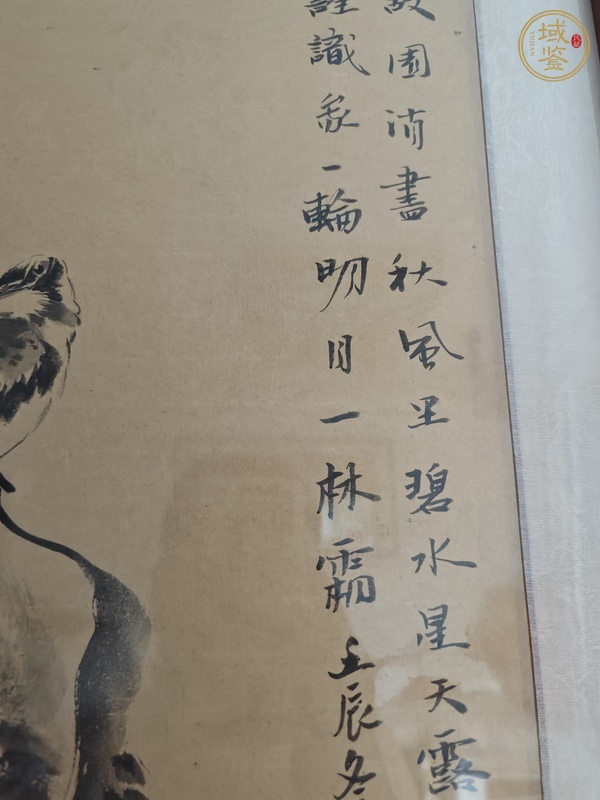 園消盡秋風里碧水星天露
識一輪明月一林霜壬辰冬
域鉴